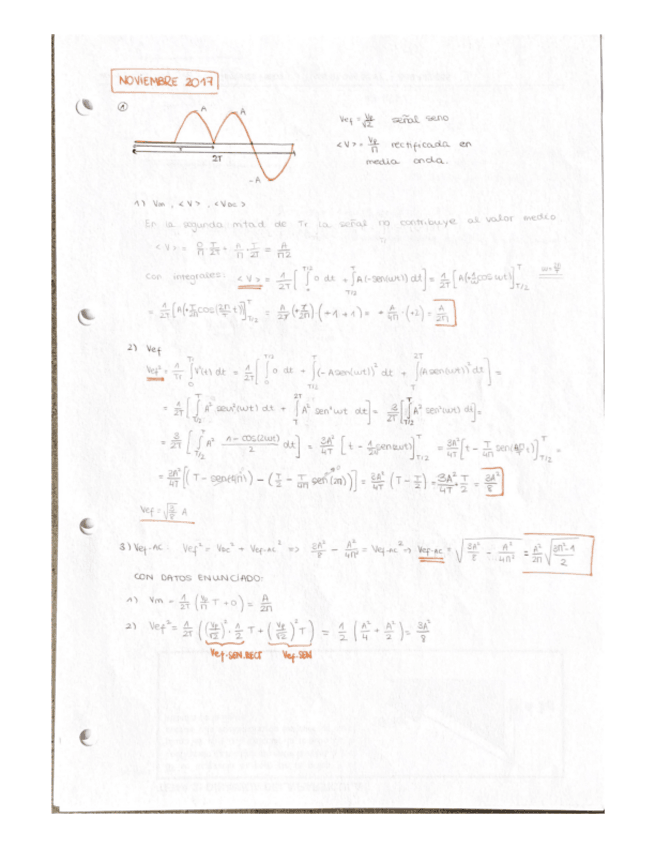 NOVIEMBRE 2017
①
A A
T
2T
-A
Vef = Vp/√2 señal seno
<V> = Vp/π rectificada en
media onda.
1) Vm, <V>, <VDC>
En la segunda mitad de Tr la señal no contribuye al valor medio
Con integrales: <V> = 1/2T [∫ 0 dt + ∫ A(-sen(ωt)) dt] = 1/2T [A(+1/ω)cos ωt]
= 1/2T [A(+T/2π)cos(2π/T t)] = A/2T (+T/2π)(+1+1) = + A/4π · (+2) = A/2π
2) Vef
Vef² = 1/Tr ∫ V²(t) dt = 1/2T [∫ 0 dt + ∫ (-A sen(ωt))² dt + ∫ (A sen(ωt))² dt] =
= 1/2T [∫ A² sen²(ωt) dt + ∫ A² sen²ωt dt] = 3/2T [∫ A² sen²(ωt) dt] =
= 3/2T [∫ A² 1-cos(2ωt)/2 dt] = 3A²/4T [t - 1/2ω sen2ωt] = 3A²/4T [t - T/4π sen(4π/T t)] =
= 3A²/4T [(T - sen(4π)) - (T/2 - T/4π sen(2π))] = 3A²/4T (T - T/2) = 3A²/4T · T/2 = 3A²/8
Vef = √3/8 A
3) Vef-AC: Vef² = VDC² + Vef-AC² => 3A²/8 - A²/4π² = Vef-AC² => Vef-AC = √3A²/8 - A²/4π²
CON DATOS ENUNCIADO:
1) Vm = 1/2T (Vp/π T + 0) = A/2π
2) Vef² = 1/2T ((Vp/√2)² · 1/2 T + (Vp/√2)² T) = 1/2 (A²/4 + A²/2) = 3A²/8
Vef-SEN.RECT Vef-SEN